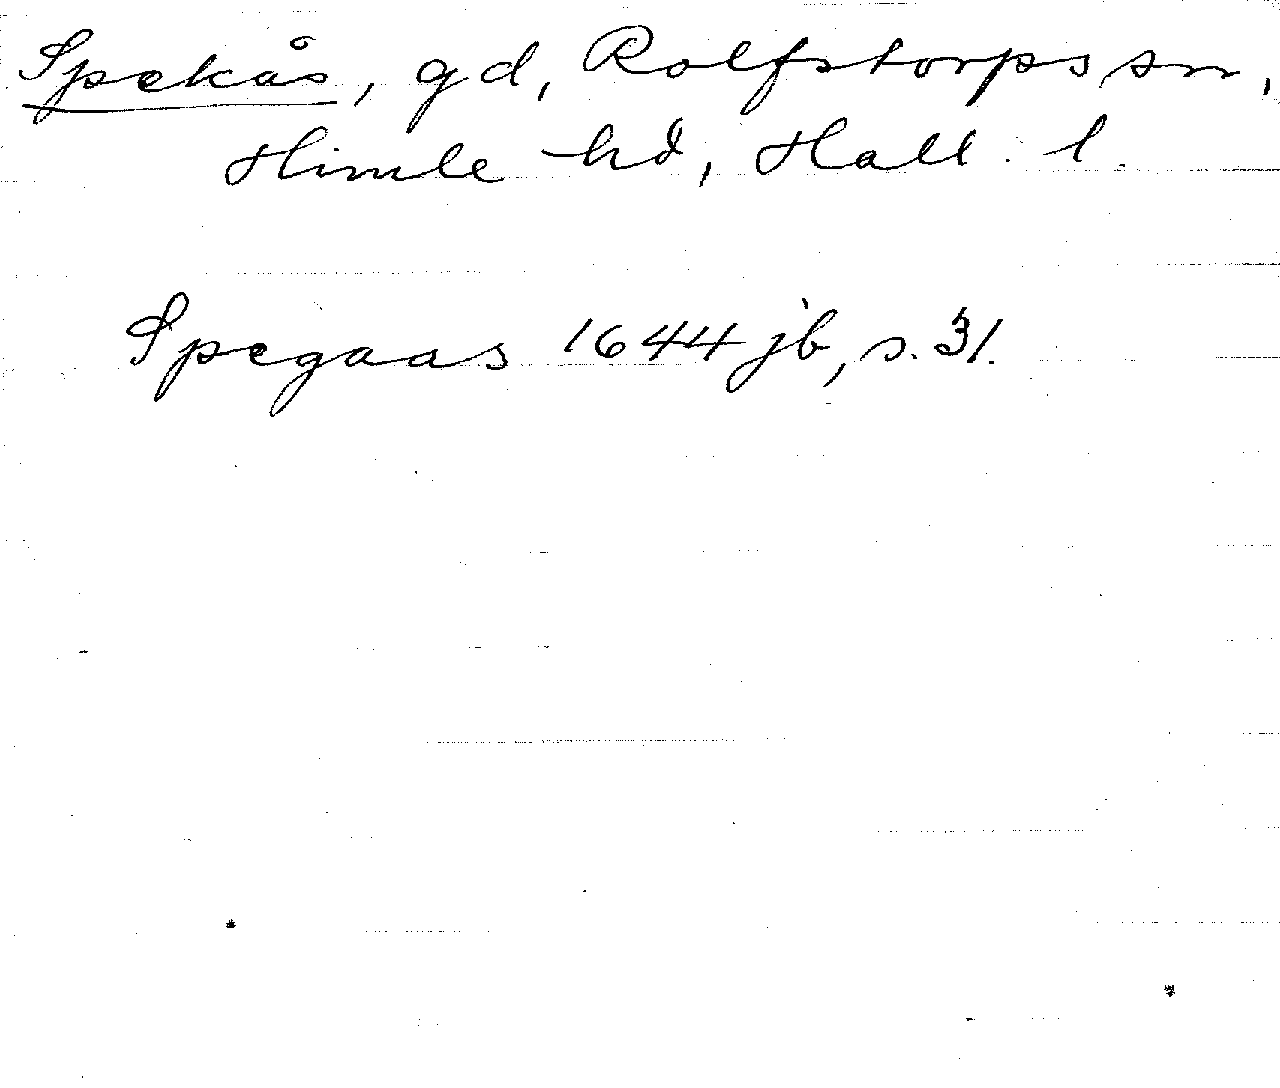 Spekås, gd, Rolfstorps sn,
Himle hd, Hall. l.
Spegaas 1644 jb, s. 31.